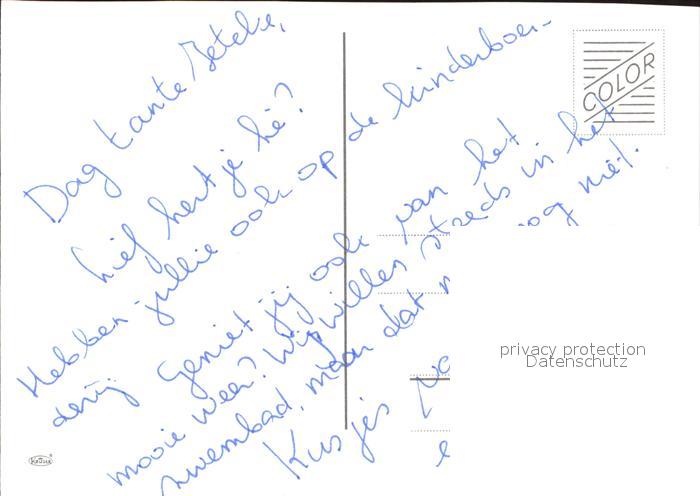 Dag tante Jetcke,
Lief hertje hè?
Hebben jullie ook op de kinderboer-
derij Geniet jij ook van het
mooie weer? Wij willen steeds in het
zwembad, maar dat nog niet.
Kusjes
COLOR
KRÜGER
privacy protection
Datenschutz